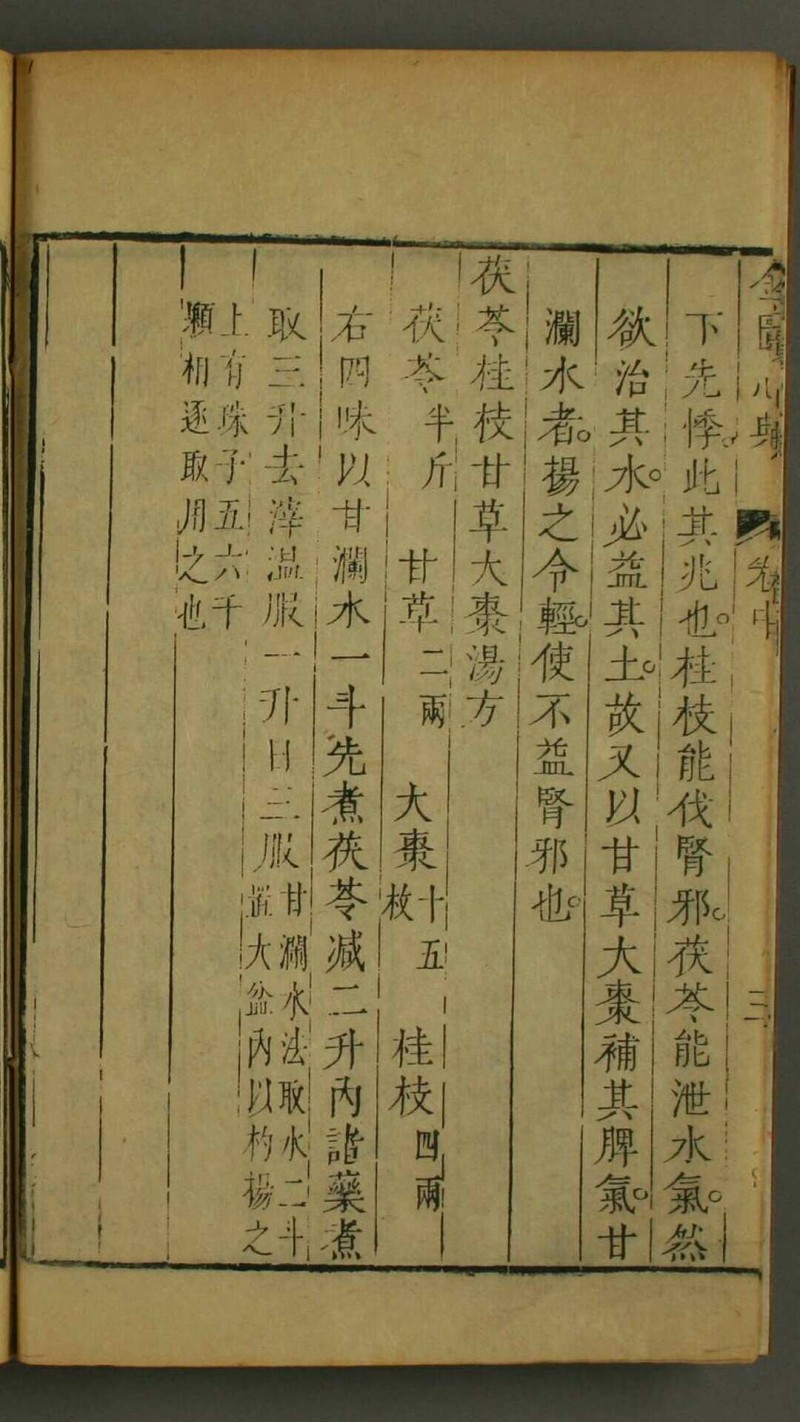 金匱心典 卷中 三
下先悸此其兆也。桂枝能伐腎邪。茯苓能泄水氣。然
欲治其水。必益其土。故又以甘草大棗補其脾氣。甘
瀾水者。揚之令輕。使不益腎邪也。
茯苓桂枝甘草大棗湯方
茯苓半斤 甘草二兩 大棗十五枚 桂枝四兩
右四味以甘瀾水一斗先煮茯苓減二升內諸藥煮
取三升去滓溫服一升日三服甘瀾水法取水二斗
置大盆內以杓揚之
上有珠子五六千
顆相逐取用之也